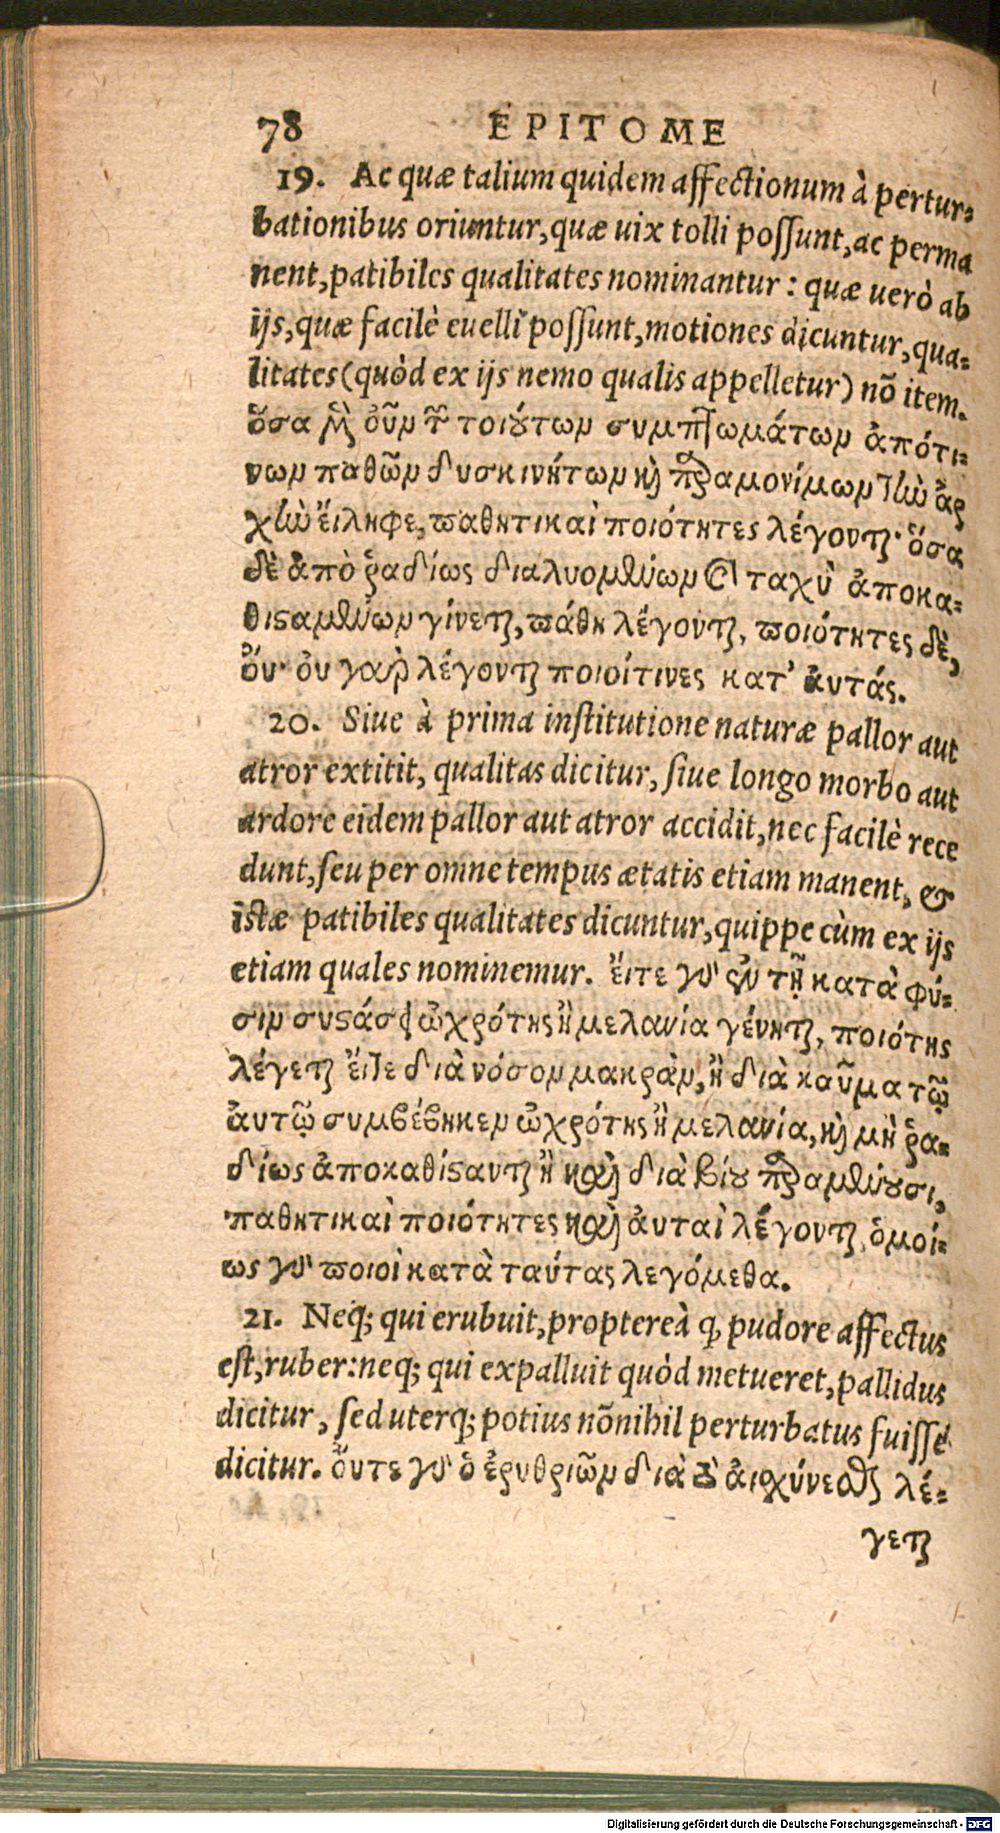 78 EPITOME
19. Ac quæ talium quidem affectionum à pertur-
bationibus oriuntur, quæ uix tolli possunt, ac perma
nent, patibiles qualitates nominantur: quæ uerò ab
ijs, quæ facilè euelli possunt, motiones dicuntur, qua-
litates (quòd ex ijs nemo qualis appelletur) nõ item.
ὅσα μὲν οὖν τῶν τοιούτων συμπτωμάτων ἀπό τι-
νων παθῶν δυσκινήτων καὶ παραμονίμων τὴν ἀρ
χὴν ἔιληφε, παθητικαὶ ποιότητες λέγονται· ὅσα
δὲ ἀπὸ ῥαδίως διαλυομένων καὶ ταχὺ ἀποκα-
θισαμένων γίνεται, πάθη λέγονται, ποιότητες δὲ,
ὄυ· ὀυ γαρ λέγονται ποιοί τινες κατ' ἀυτάς.
20. Siue à prima institutione naturæ pallor aut
atror extitit, qualitas dicitur, siue longo morbo aut
ardore eidem pallor aut atror accidit, nec facilè rece
dunt, seu per omne tempus ætatis etiam manent, &
istæ patibiles qualitates dicuntur, quippe cùm ex ijs
etiam quales nominemur. ἔιτε γὰρ ἐν τῇ κατὰ φύ-
σιν συστάσει ὠχρότης ἢ μελανία γένηται, ποιότης
λέγεται ἔιτε διὰ νόσον μακρὰν, ἢ διὰ καῦμα τῷ
ἀυτῷ συμβέβηκεν ὠχρότης ἢ μελανία, καὶ μὴ ῥα-
δίως ἀποκαθίστανται ἢ καὶ διὰ βίου παραμένουσι,
παθητικαὶ ποιότητες καὶ ἀυταὶ λέγονται, ὁμοί-
ως γὰρ ποιοὶ κατὰ ταύτας λεγόμεθα.
21. Neq; qui erubuit, proptereà q, pudore affectus
est, ruber: neq; qui expalluit quòd metueret, pallidus
dicitur, sed uterq; potius nõnihil perturbatus fuisse
dicitur. ὄυτε γὰρ ὁ ἐρυθριῶν διὰ τὸ ἀισχύνεσθαι λέ-
γεται
Digitalisierung gefördert durch die Deutsche Forschungsgemeinschaft - DFG